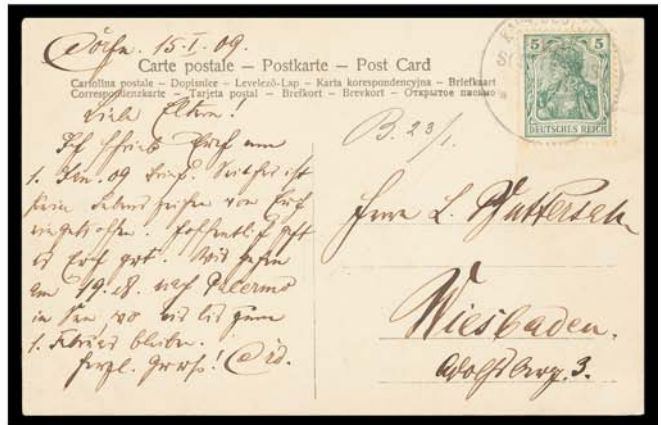 Corfu. 15.I.09.
Carte postale – Postkarte – Post Card
Cartolina postale – Dopisnice – Levelező-Lap – Karta korespondencyjna – Briefkaart
Correspondenzkarte – Tarjeta postal – Brefkort – Brevkort – Открытое письмо
Liebe Eltern!
Ich schrieb Euch am
1. Jan. 09 Brief. Seither ist
kein Lebenszeichen von Euch
eingetroffen. Hoffentlich geht
es Euch gut. Wir gehen
am 19. d. nach Palermo
in See, wo wir bis zum
1. Februar bleiben.
Herzl. Gruss!
B. 23/1.
5 5
DEUTSCHES REICH
Herrn L.
Wiesbaden.
3.